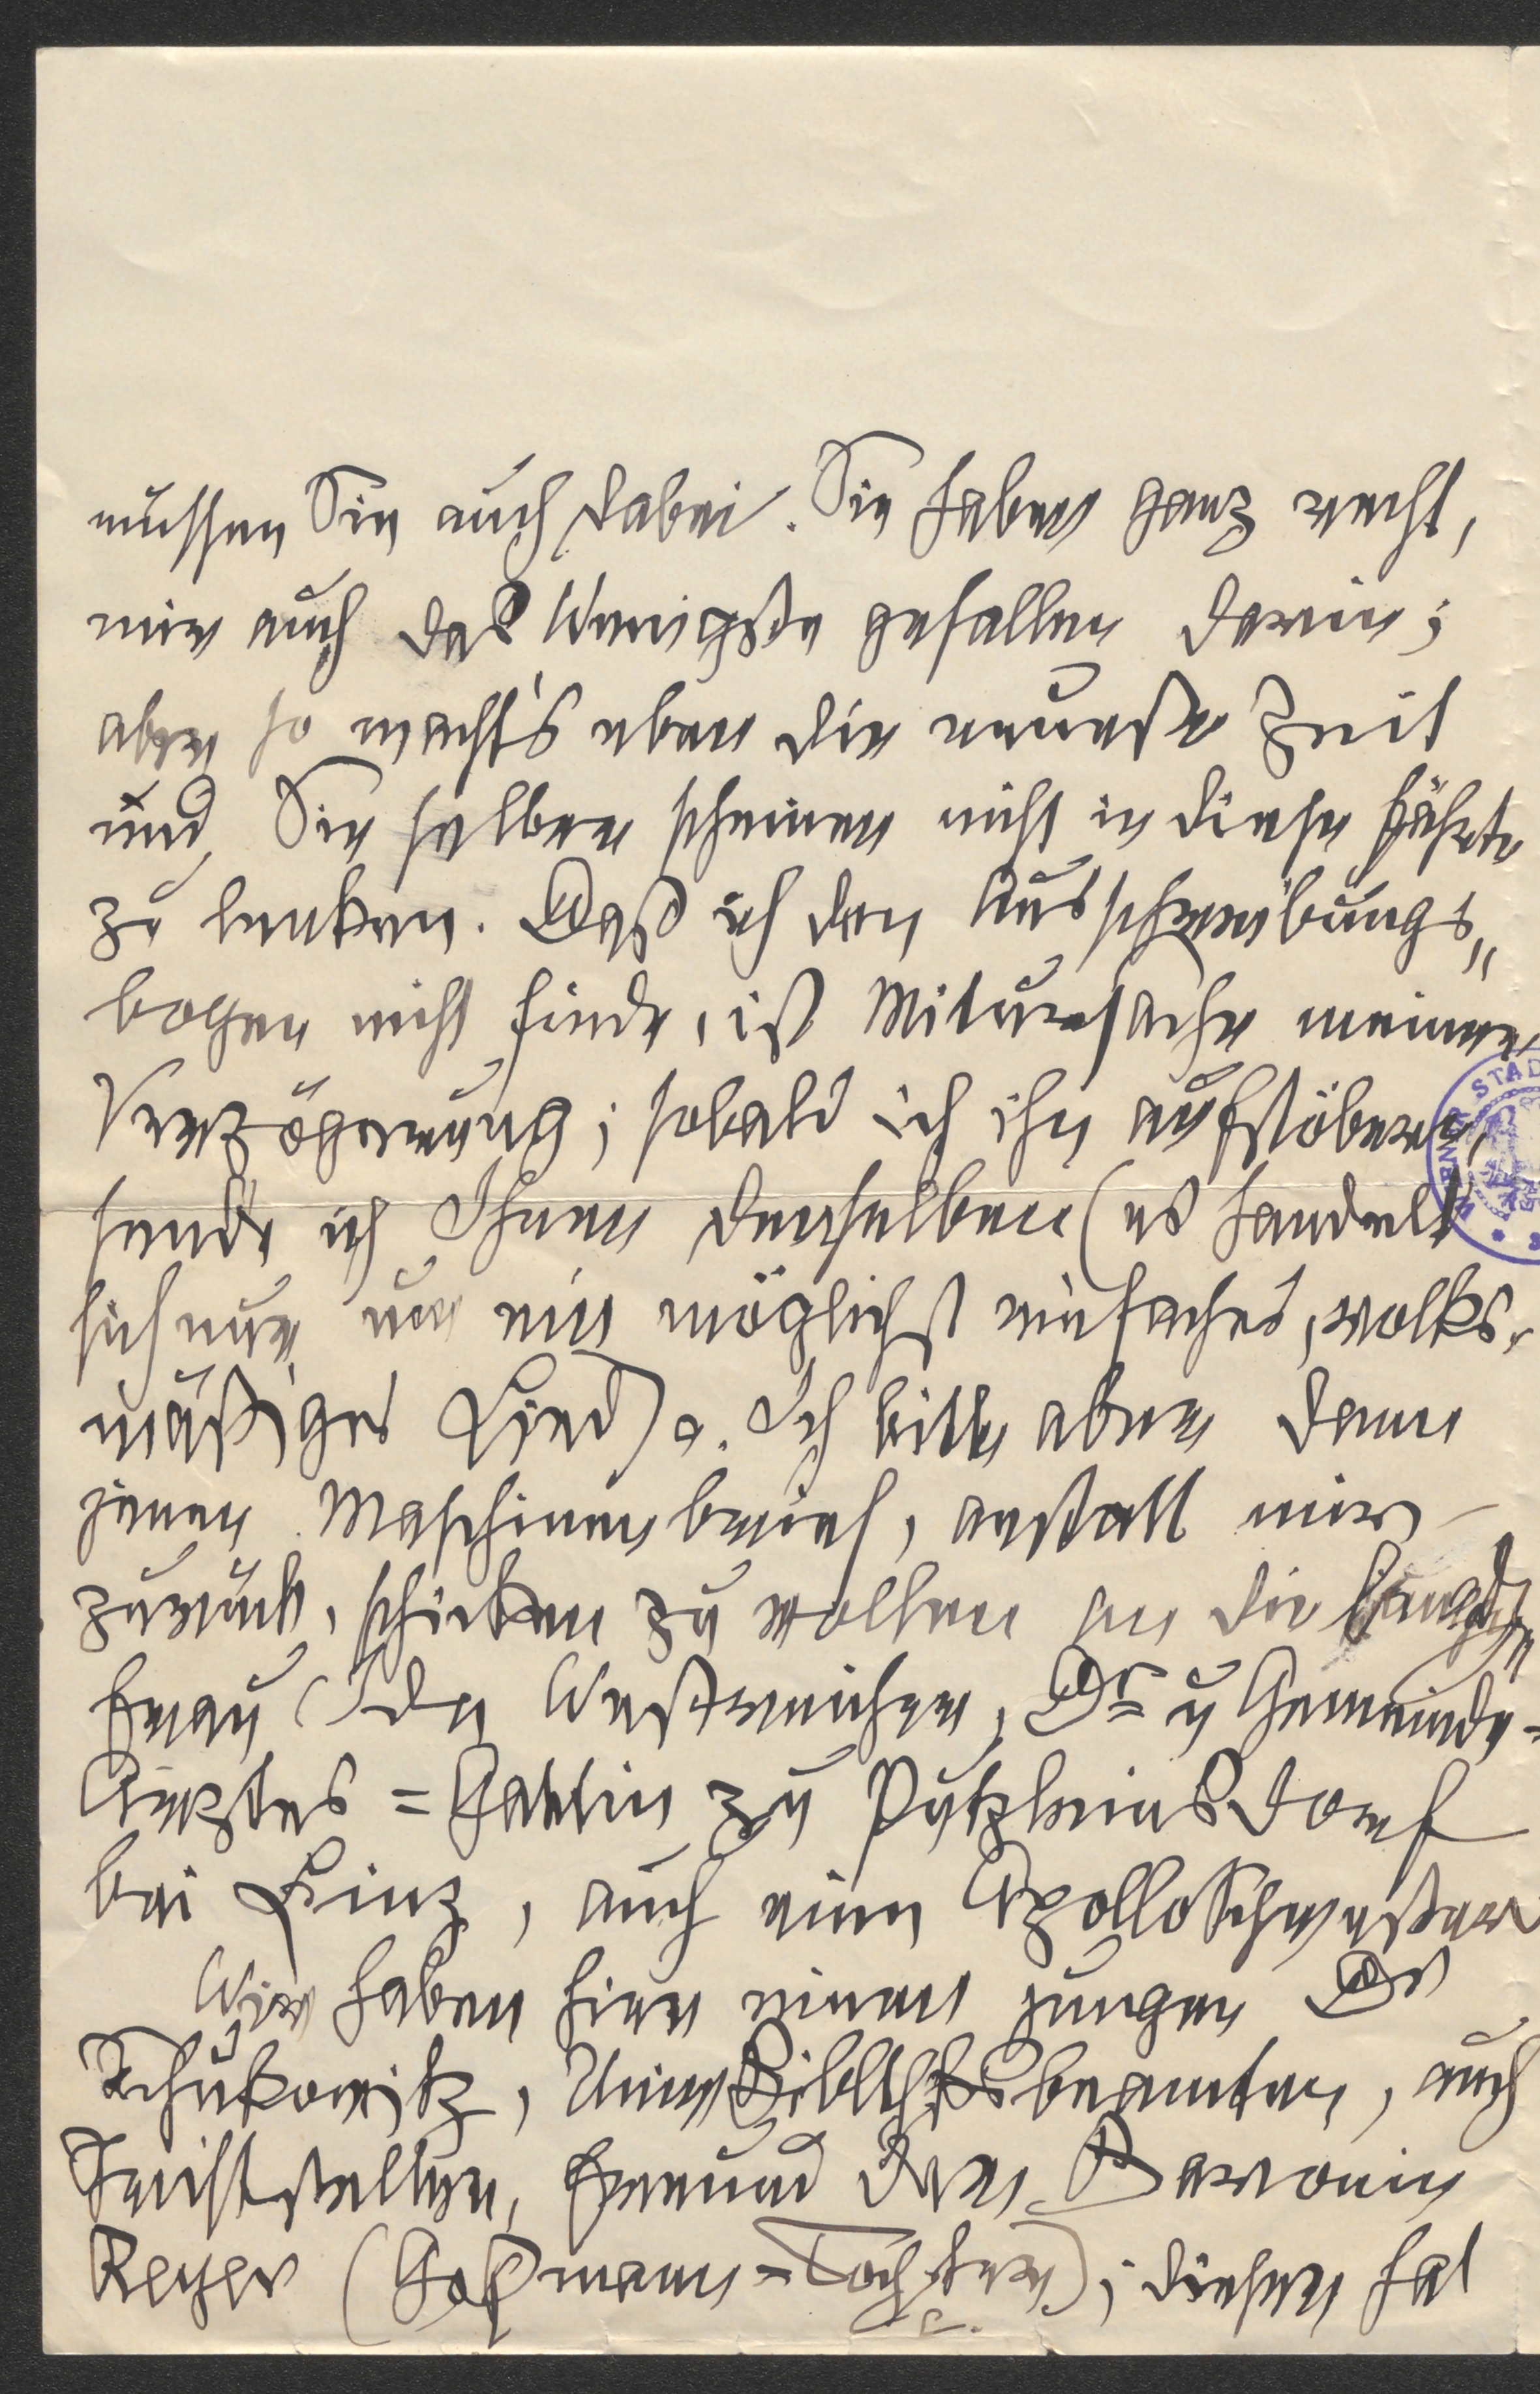 müssen Sie auch dabei. Sie haben ganz recht,
mir auch das Wenigste gefallen darin;
aber so macht's eben die neueste Zeit
und Sie selber scheinen nicht in diese Fährte
zu lenken. Daß ich den Ausschreibungs„
bogen nicht finde, ist Mitursache meiner
Verzögerung; sobald ich ihn aufstöbere,
sende ich Ihnen denselben (es handelt
sich nur um ein möglichst einfaches, volks-
mäßiges Lied). Ich bitte aber dann
jenen Maschinenbrief, anstatt mir
zurück, schicken zu wollen an die
Frau Ida Westreicher, Drs u Gemeinde=
Arztes=Gattin zu Putzleinsdorf
bei Linz, auch eine Apolloschwester
Wir haben hier einen jungen Dr
Schukowitz, beamten, auch
Schriftsteller, Freund der Baronin
Reyer (Hofmann=Tochter); dieser hat
STAD